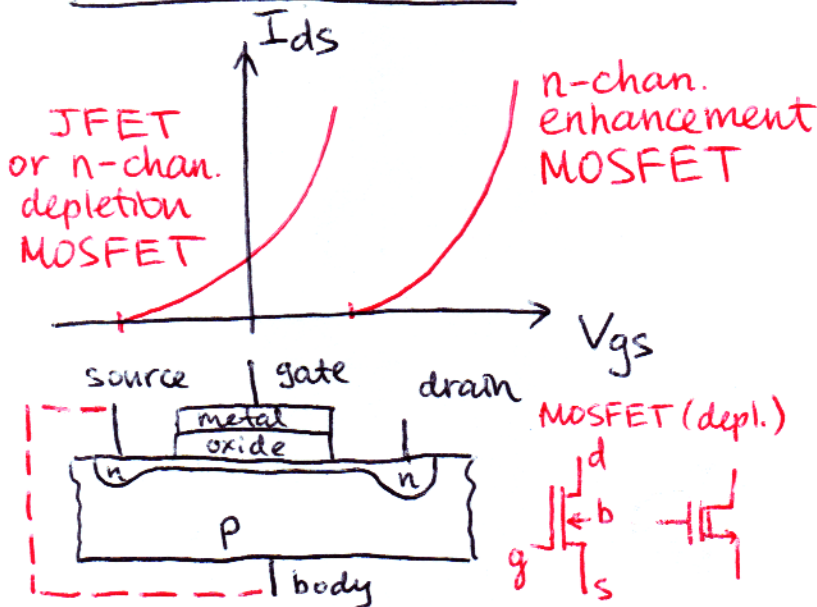 Ids
JFET
or n-chan.
depletion
MOSFET
n-chan.
enhancement
MOSFET
Vgs
source
gate
drain
metal
oxide
n
n
p
body
MOSFET (depl.)
d
b
g
s